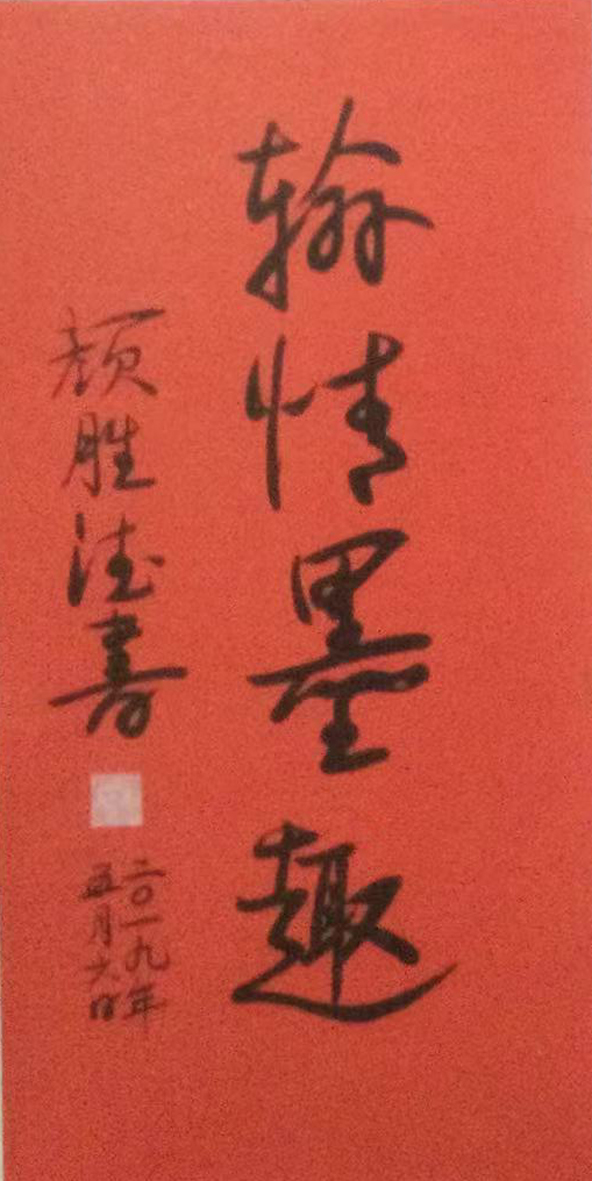 翰情墨趣
颜胜德书
二〇一九年
五月六日